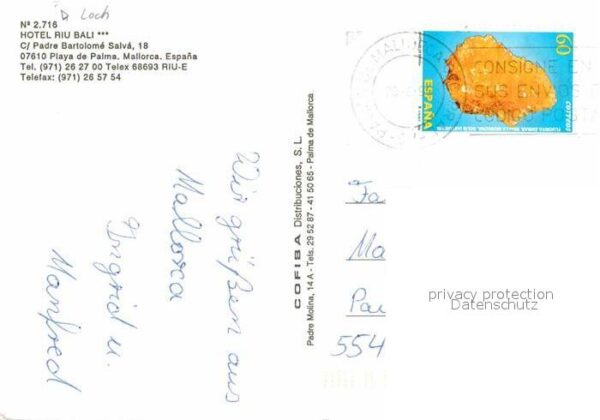 Loch
Nº 2.716
HOTEL RIU BALI ***
C/ Padre Bartolomé Salvá, 18
07610 Playa de Palma. Mallorca. España
Tel. (971) 26 27 00 Telex 68693 RIU-E
Telefax: (971) 26 57 54
Wir grüßen aus
Mallorca
Ingrid u.
Manfred
COFIBA Distribuciones, S. L.
Padre Molina, 14 A - Tels. 29 52 87 - 41 50 65 - Palma de Mallorca
60
CORREOS
ESPAÑA
CONSIGNE EN
SUS ENVIOS
CODIGO POSTA
Fa
Ma
Pau
554
privacy protection
Datenschutz